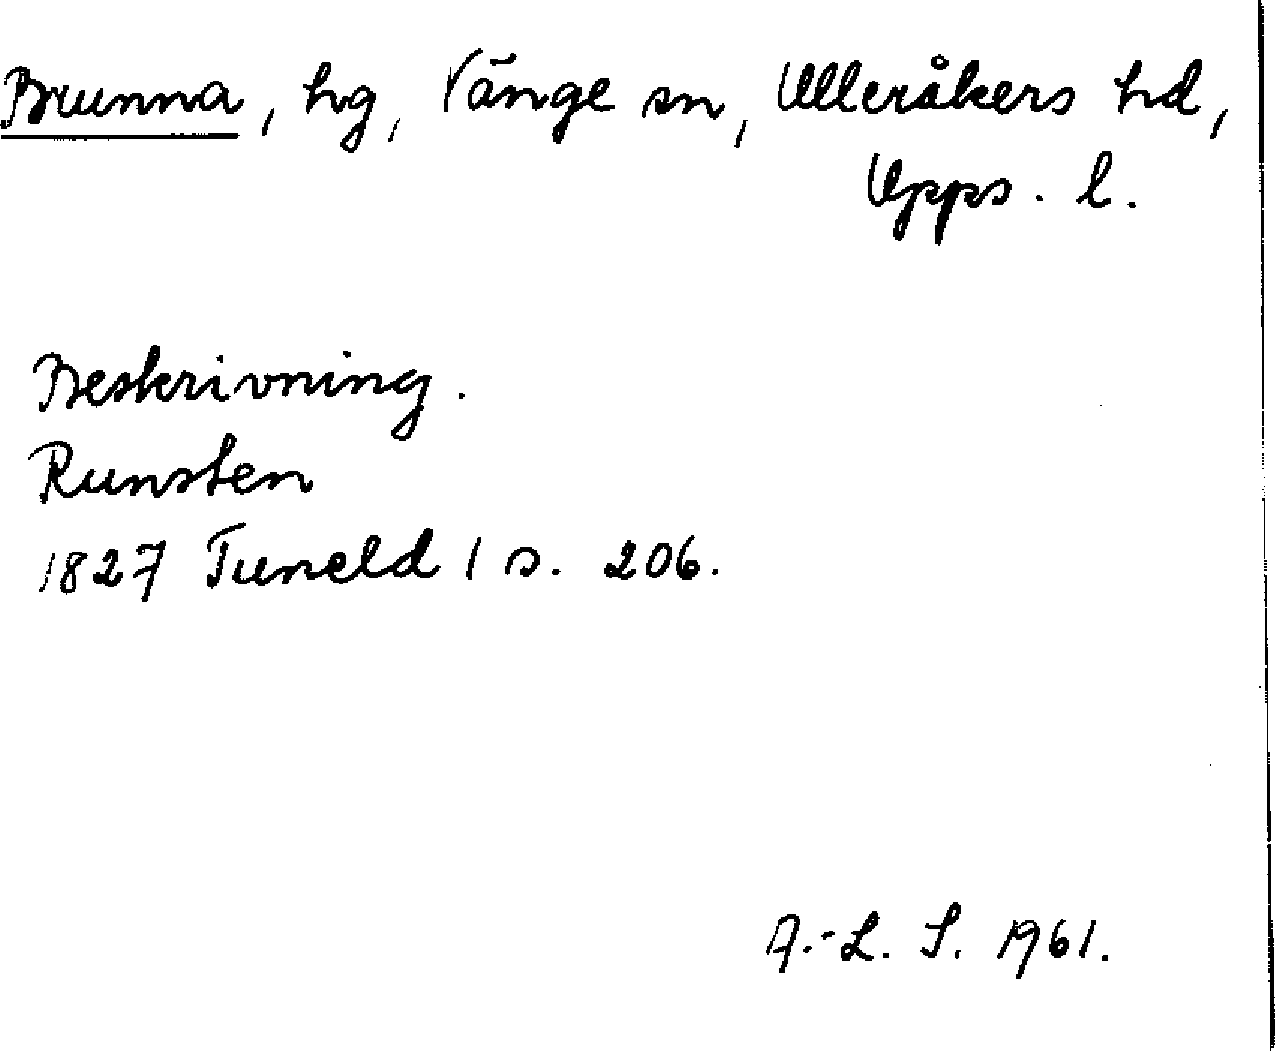 Brunna, hg, Vänge sn, Ulleråkers hd,
Upps. l.
Beskrivning.
Runsten
1827 Tuneld 1 s. 206.
A.-L. S. 1961.